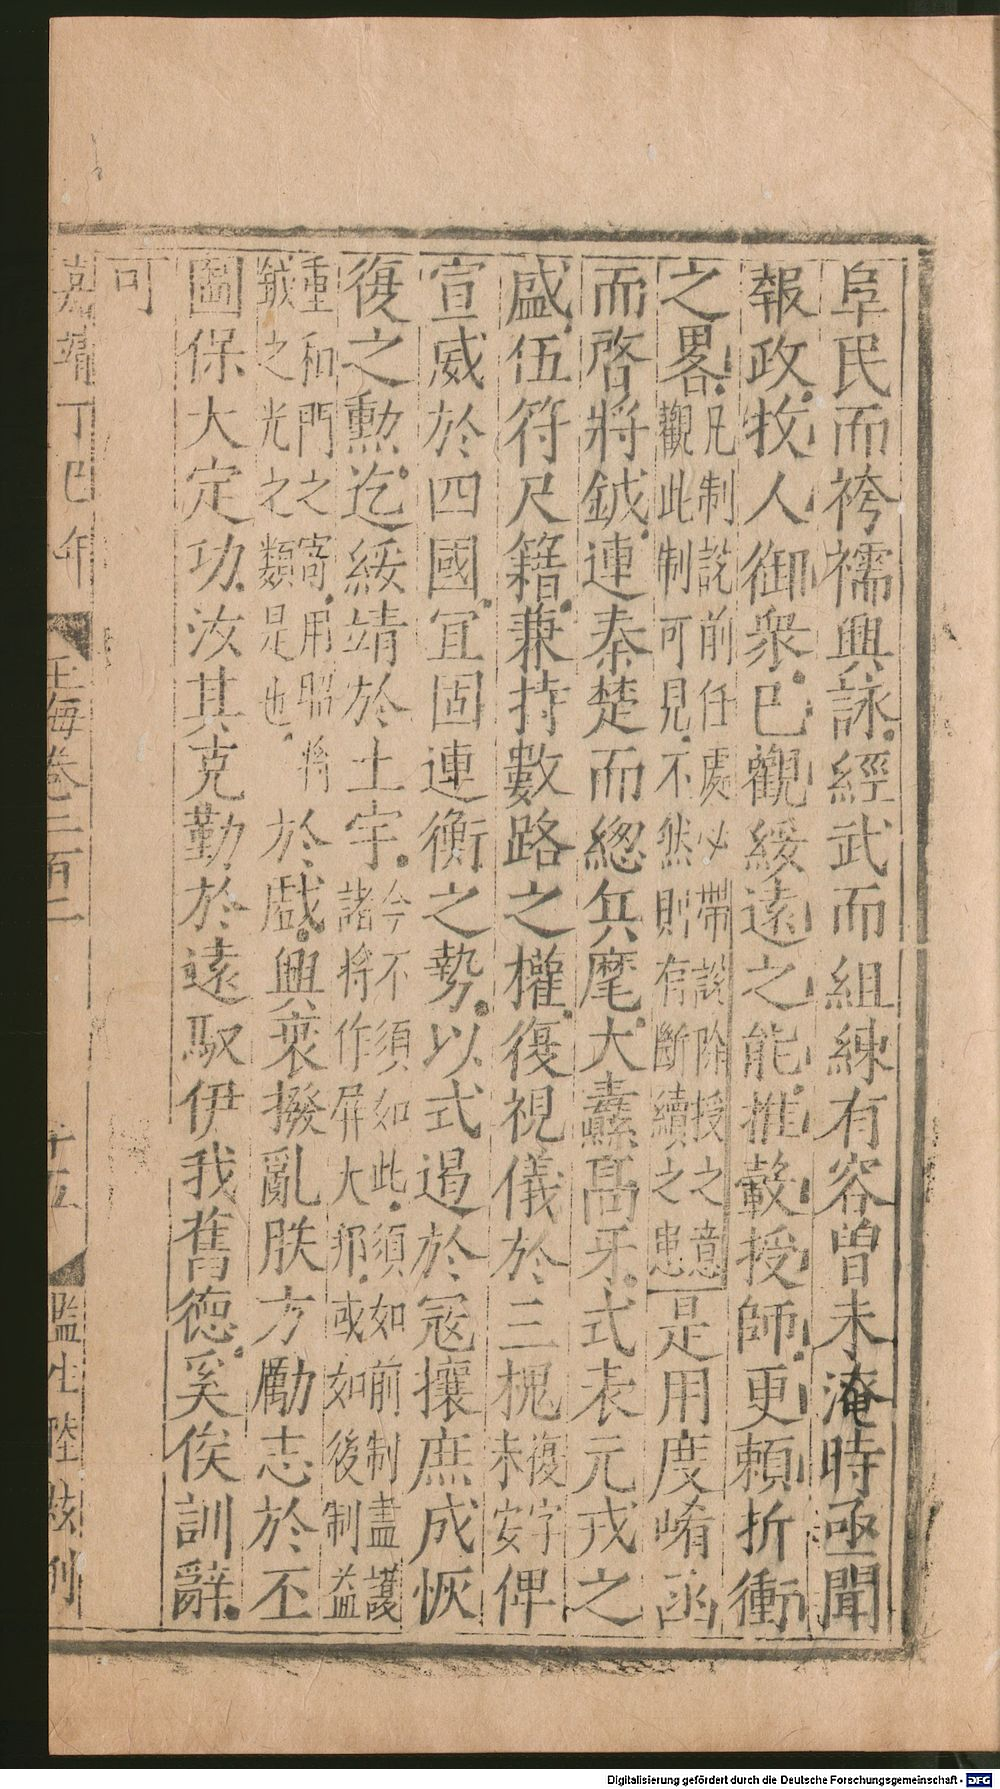 阜民而袴襦興詠經武而組練有容曾未淹時亟聞
報政牧人御衆已觀綏遠之能推轂授師更頼折衝
之畧凡制説前任處必帶説除授之意觀此制可見不然則有斷續之患是用度崤函
而啓將鉞連秦楚而緫兵麾大纛高牙式表元戎之
盛伍符尺籍兼持數路之權復視儀於三槐復字未安俾
宣威於四國冝固連衡之勢以式遏於冦攘庶成恢
復之勲迄綏靖於土宇今不須如此須如前制盡護諸將作屏大邦或如後制益
重和門之寄用昭將鉞之光之類是也於戲興衰撥亂朕方勵志於丕
圖保大定功汝其克勤於遠馭伊我舊德奚俟訓辭
可
嘉靖丁巳年 玉海卷二百二 十五 監生陸 刊
Digitalisierung gefördert durch die Deutsche Forschungsgemeinschaft - DFG